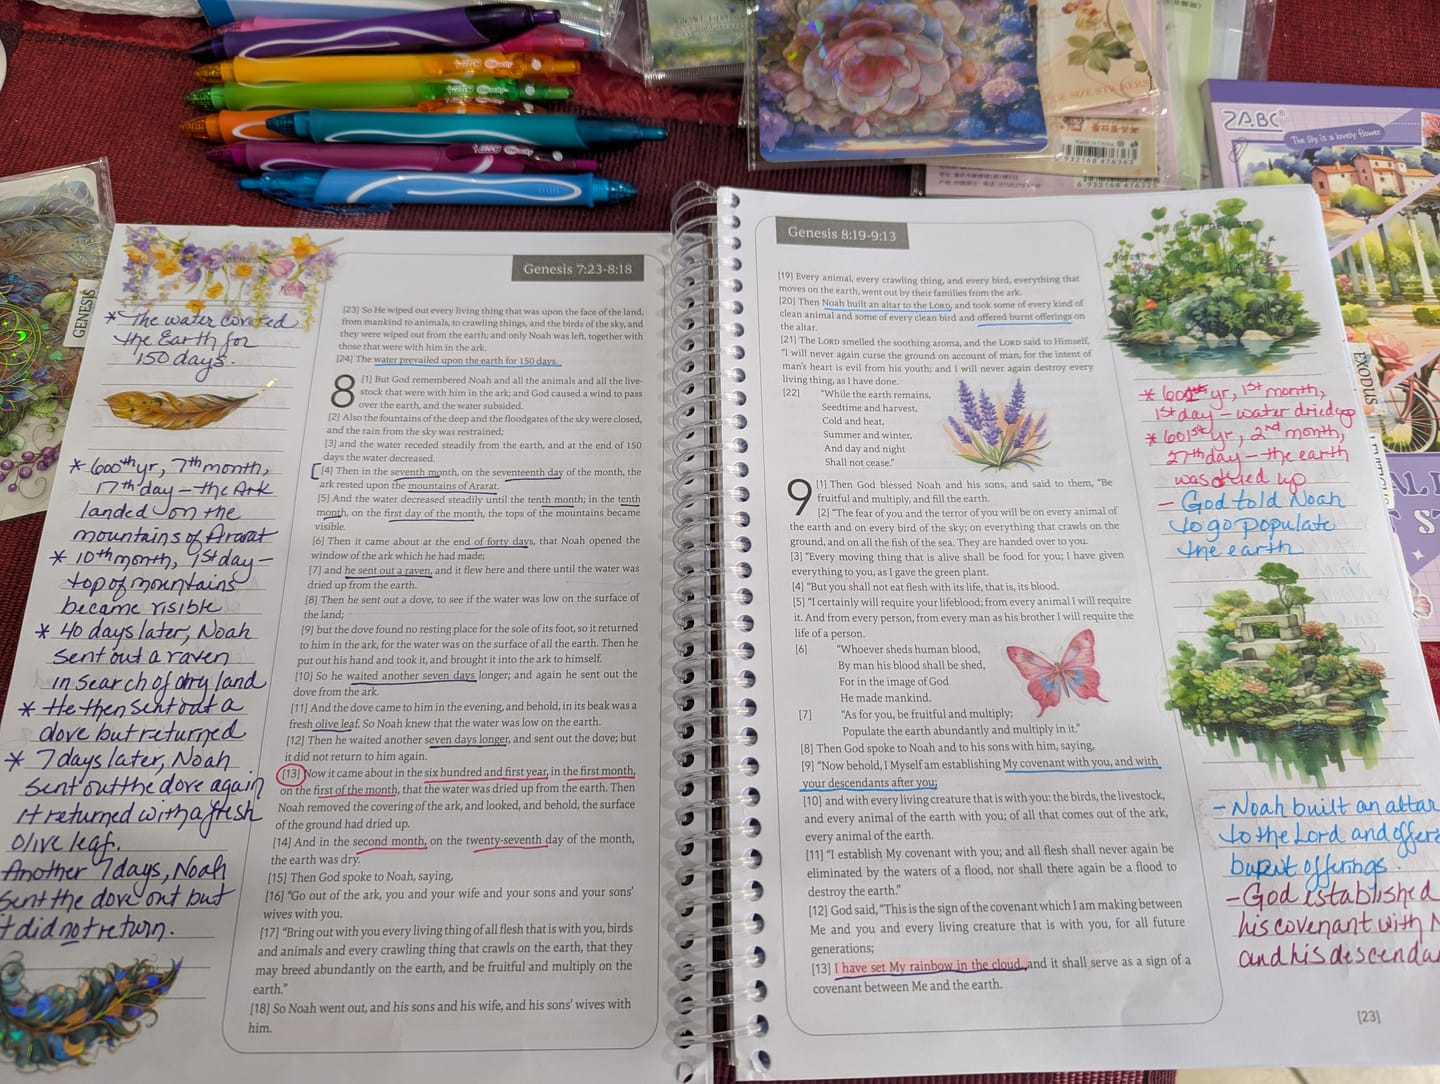 ZABC
The lily is a lovely flower
Made in China
6 932168 476325
GENESIS
EXODUS
Genesis 7:23-8:18
[23] So He wiped out every living thing that was upon the face of the land,
from mankind to animals, to crawling things, and the birds of the sky, and
they were wiped out from the earth; and only Noah was left, together with
those that were with him in the ark.
[24] The water prevailed upon the earth for 150 days.
8 [1] But God remembered Noah and all the animals and all the live-
stock that were with him in the ark; and God caused a wind to pass
over the earth, and the water subsided.
[2] Also the fountains of the deep and the floodgates of the sky were closed,
and the rain from the sky was restrained;
[3] and the water receded steadily from the earth, and at the end of 150
days the water decreased.
[4] Then in the seventh month, on the seventeenth day of the month, the
ark rested upon the mountains of Ararat.
[5] And the water decreased steadily until the tenth month; in the tenth
month, on the first day of the month, the tops of the mountains became
visible.
[6] Then it came about at the end of forty days, that Noah opened the
window of the ark which he had made;
[7] and he sent out a raven, and it flew here and there until the water was
dried up from the earth.
[8] Then he sent out a dove, to see if the water was low on the surface of
the land;
[9] but the dove found no resting place for the sole of its foot, so it returned
to him in the ark, for the water was on the surface of all the earth. Then he
put out his hand and took it, and brought it into the ark to himself.
[10] So he waited another seven days longer; and again he sent out the
dove from the ark.
[11] And the dove came to him in the evening, and behold, in its beak was a
fresh olive leaf. So Noah knew that the water was low on the earth.
[12] Then he waited another seven days longer, and sent out the dove; but
it did not return to him again.
[13] Now it came about in the six hundred and first year, in the first month,
on the first of the month, that the water was dried up from the earth. Then
Noah removed the covering of the ark, and looked, and behold, the surface
of the ground had dried up.
[14] And in the second month, on the twenty-seventh day of the month,
the earth was dry.
[15] Then God spoke to Noah, saying,
[16] “Go out of the ark, you and your wife and your sons and your sons’
wives with you.
[17] “Bring out with you every living thing of all flesh that is with you, birds
and animals and every crawling thing that crawls on the earth, that they
may breed abundantly on the earth, and be fruitful and multiply on the
earth.”
[18] So Noah went out, and his sons and his wife, and his sons’ wives with
him.
* The water covered
the Earth for
150 days.
* 600th yr, 7th month,
17th day - the Ark
landed on the
mountains of Ararat
* 10th month, 1st day -
top of mountains
became visible
* 40 days later, Noah
sent out a raven
in search of dry land
* He then sent out a
dove but returned
* 7 days later, Noah
sent out the dove again
it returned with a fresh
olive leaf.
Another 7 days, Noah
sent the dove out but
it did not return.
Genesis 8:19-9:13
[19] Every animal, every crawling thing, and every bird, everything that
moves on the earth, went out by their families from the ark.
[20] Then Noah built an altar to the LORD, and took some of every kind of
clean animal and some of every clean bird and offered burnt offerings on
the altar.
[21] The LORD smelled the soothing aroma, and the LORD said to Himself,
“I will never again curse the ground on account of man, for the intent of
man’s heart is evil from his youth; and I will never again destroy every
living thing, as I have done.
[22] “While the earth remains,
Seedtime and harvest,
Cold and heat,
Summer and winter,
And day and night
Shall not cease.”
9 [1] Then God blessed Noah and his sons, and said to them, “Be
fruitful and multiply, and fill the earth.
[2] “The fear of you and the terror of you will be on every animal of
the earth and on every bird of the sky; on everything that crawls on the
ground, and on all the fish of the sea. They are handed over to you.
[3] “Every moving thing that is alive shall be food for you; I have given
everything to you, as I gave the green plant.
[4] “But you shall not eat flesh with its life, that is, its blood.
[5] “I certainly will require your lifeblood; from every animal I will require
it. And from every person, from every man as his brother I will require the
life of a person.
[6] “Whoever sheds human blood,
By man his blood shall be shed,
For in the image of God
He made mankind.
[7] “As for you, be fruitful and multiply;
Populate the earth abundantly and multiply in it.”
[8] Then God spoke to Noah and to his sons with him, saying,
[9] “Now behold, I Myself am establishing My covenant with you, and with
your descendants after you;
[10] and with every living creature that is with you: the birds, the livestock,
and every animal of the earth with you; of all that comes out of the ark,
every animal of the earth.
[11] “I establish My covenant with you; and all flesh shall never again be
eliminated by the waters of a flood, nor shall there again be a flood to
destroy the earth.”
[12] God said, “This is the sign of the covenant which I am making between
Me and you and every living creature that is with you, for all future
generations;
[13] I have set My rainbow in the cloud, and it shall serve as a sign of a
covenant between Me and the earth.
* 600th yr, 1st month,
1st day - water dried up
* 601st yr, 2nd month,
27th day - the earth
was dried up
- God told Noah
to go populate
the earth
- Noah built an altar
to the Lord and offere
burnt offerings.
- God established
his covenant with N
and his descendan
[23]